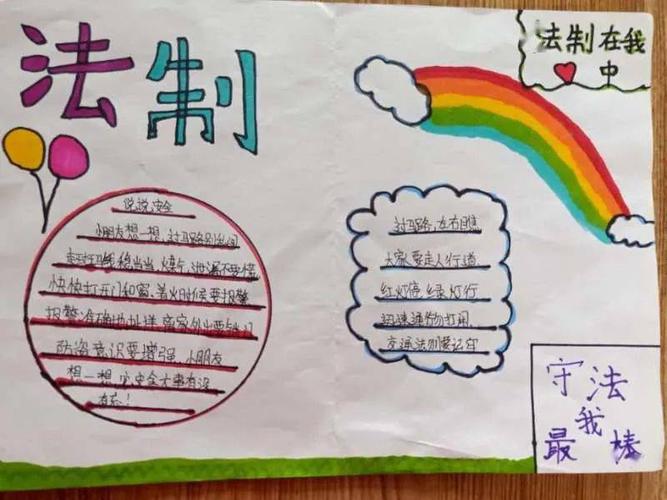 法制
法制在我
中
说说安全
小朋友想一想,过马路别出
走斑马线稳当当,煤气泄漏不要慌
快快打开门和窗、着火时候要报警
报警准确地址详,离家外出要
防盗意识要增强,小朋友
想一想,安全大事有没
有忘!
过马路,左右瞧
大家要走人行道
红灯停,绿灯行
交通法则要记牢
守法
我
最棒